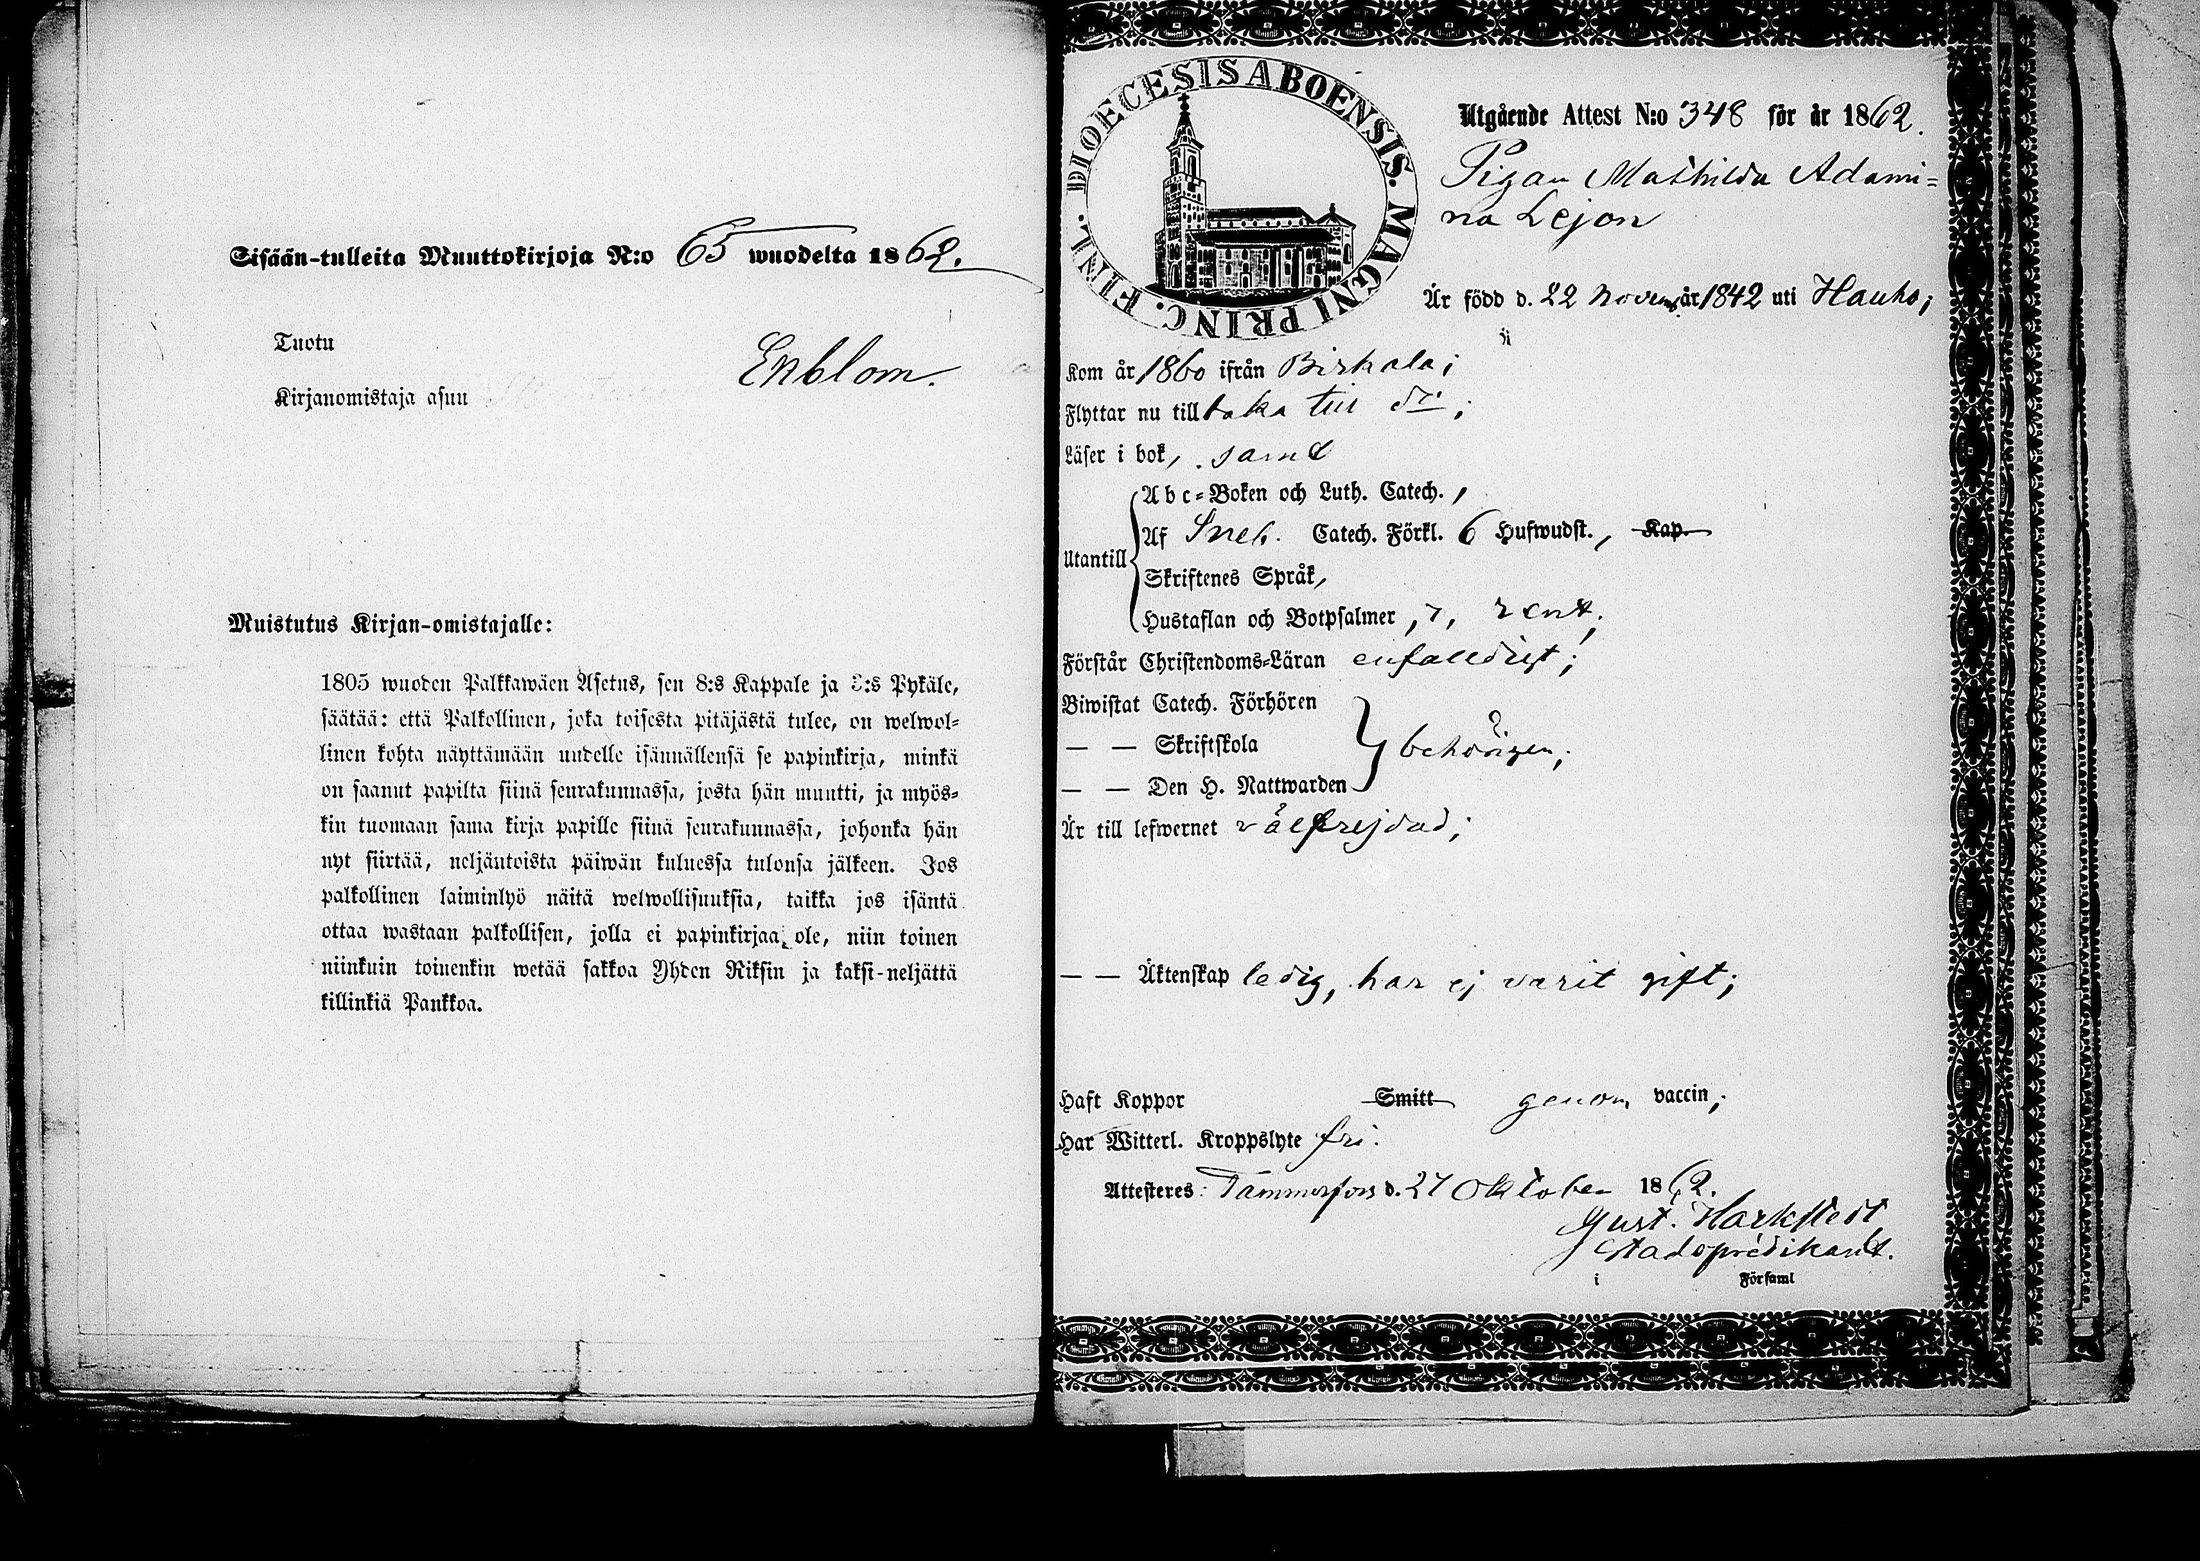 Sisään-tulleita Muuttokirjoja N:o 65 wuodelta 1862.
Tuotu
Enblom.
Kirjanomistaja asuu
Muistutus Kirjan-omistajalle:
1805 wuoden Palkkawäen Asetus, sen 8:s Kappale ja 3:s Pykäle,
säätää: että Palkollinen, joka toisesta pitäjästä tulee, on welwol-
linen kohta näyttämään uudelle isännällensä se papinkirja, minkä
on saanut papilta siinä seurakunnassa, josta hän muutti, ja myös-
kin tuomaan sama kirja papille siinä seurakunnassa, johonka hän
nyt siirtää, neljäntoista päiwän kuluessa tulonsa jälkeen. Jos
palkollinen laiminlyö näitä welwollisuuksia, taikka jos isäntä
ottaa wastaan palkollisen, jolla ei papinkirjaa ole, niin toinen
niinkuin toinenkin wetää sakkoa Yhden Riksin ja kaksi-neljättä
killinkiä Pankkoa.
DIOECESIS ABOENSIS. MAGNI PRINC. FINL.
Utgående Attest N:o 348 för år 1862.
Pigan Mathilda Adami=
na Lejon
Är född d. 22 Novem. år 1842 uti Hauho;
Kom år 1860 ifrån Birkala;
Flyttar nu till baka till do;
Läser i bok, samt
Utantill
Abc=Boken och Luth. Catech.,
Af Sneb. Catech. Förkl. 6 Hufwudst., Kap.
Skriftenes Språk,
Hustaflan och Botpsalmer, 7, rent;
Förstår Christendoms=Läran enfaldigt;
Biwistat Catech. Förhören
— — Skriftskola behörigen;
— — Den H. Nattwarden
Är till lefwernet välfrejdad;
— — Äktenskap ledig, har ej varit gift;
Haft Koppor Smitt genom vaccin;
Har Witterl. Kroppslyte fri.
Attesteres: Tammerfors d. 27 Oktober 1862.
Gust. Harkstedt
Stadspredikant.
i Församl